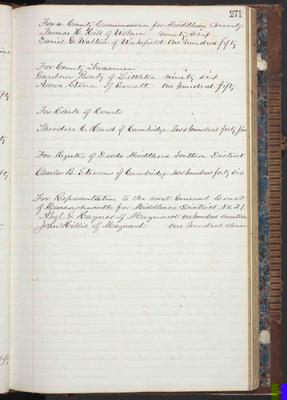 271
For a County Commissioner for Middlesex County
Thomas H. Hill of Woburn ninety six
Daniel G. Walton of Wakefield one hundred fifty
For County Treasurer
Gardner Prouty of Littleton ninety six
Amos Stone of Everett one hundred fifty
For Clerk of Courts
Theodore C. Hurd of Cambridge Two hundred forty five
For Register of Deeds Middlesex Southern District
Charles B. Stevens of Cambridge two hundred forty six
For Representative to the next General Court
of Massachusetts for Middlesex District No. 29
Abel G. Haynes of Maynard one hundred nineteen
John Hillis of Maynard one hundred eleven